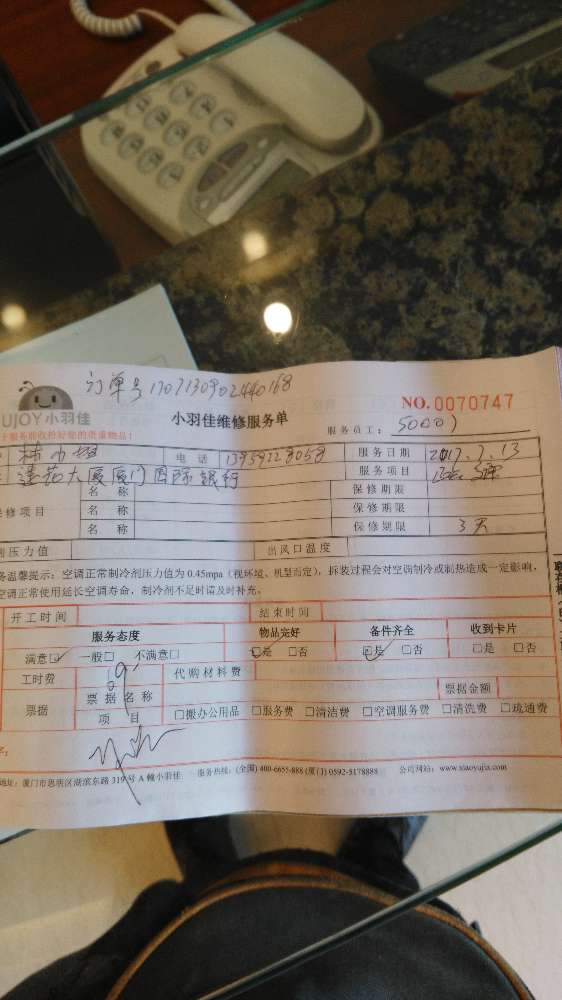 订单号1707130902440168
UJOY小羽佳
小羽佳维修服务单
NO.0070747
服务前收拾好您的贵重物品!
服务员工:
林小
电话 13959228058
服务日期 2017.7.13
莲花大厦厦门国际银行
服务项目
名称
保修期限
修项目
名称
保修期限
名称
保修期限 3天
压力值
出风口温度
务温馨提示:空调正常制冷剂压力值为0.45mpa(视环境、机型而定),拆装过程会对空调制冷或制热造成一定影响,
空调正常使用延长空调寿命,制冷剂不足时请及时补充。
开工时间
结束时间
服务态度
物品完好
备件齐全
收到卡片
满意☑ 一般□ 不满意□
☑是 □否
☑是 □否
□是 □否
工时费
代购材料费
票据
票据名称
票据金额
项目
□搬办公用品 □服务费 □清洁费 □空调服务费 □清洗费 □疏通费
地址:厦门市思明区湖滨东路319号A幢小羽佳 服务热线:(全国)400-6655-888(厦门)0592-5178888 公司网站:www.xiaoyujia.com